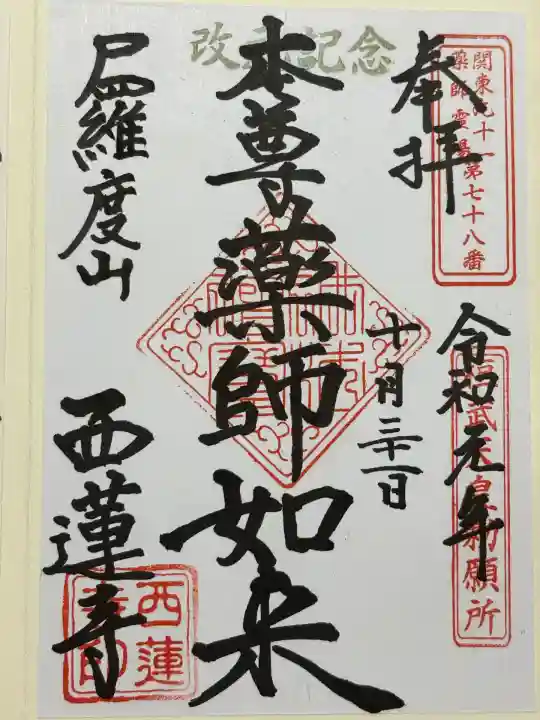 関東九十一
薬師霊場第七十八番
奉拝
令和元年
桓武天皇勅願所
十月三十一日
改元記念
本尊薬師如来
尸羅度山
西蓮寺
西蓮
寺印